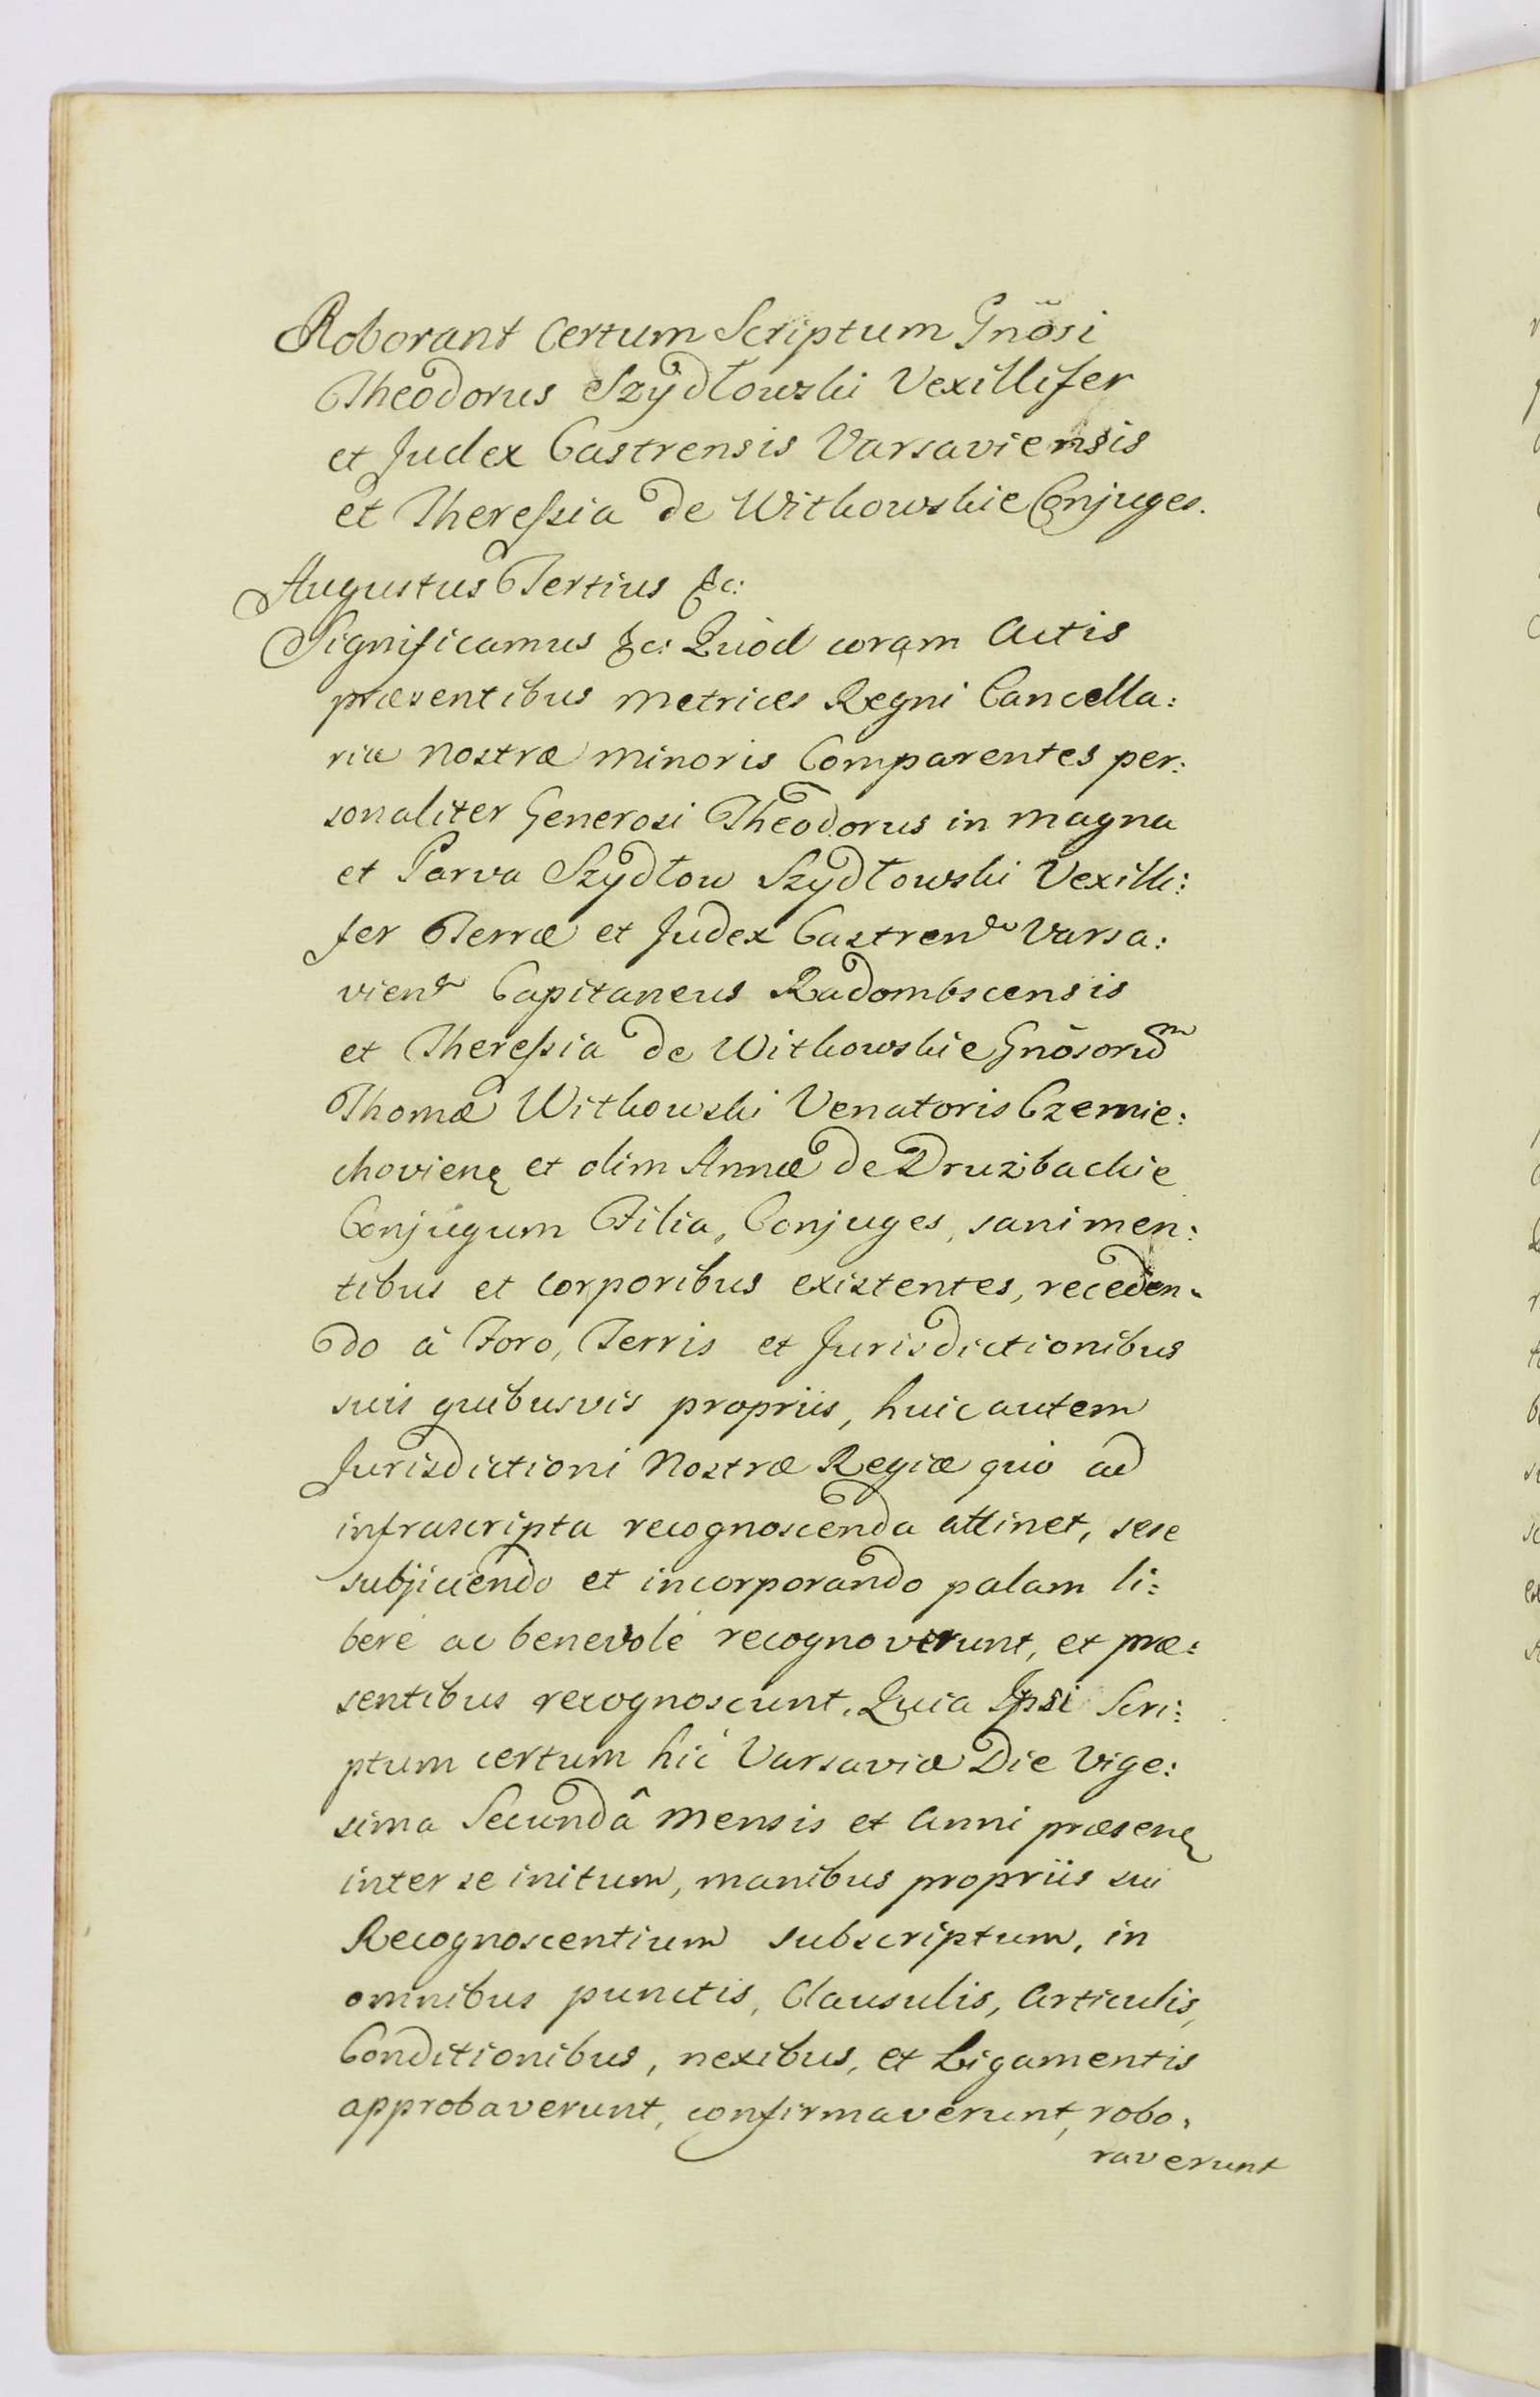 Roborant Certum Scriptum Gnõsi
Theodorus Szÿdłowski Vexillifer
et Judex Castrensis Varsaviensis
et Theressia de Witkowskie Conjuges.
Augustus Tertius &c:
Significamus &c: Quòd coram Actis
præsentibus Metrices Regni Cancella:
riæ Nostræ Minoris Comparentes per:
sonaliter Generosi Theodorus in Magna
et Parva Szÿdłow Szÿdłowski Vexilli:
fer Terræ et Judex Castren Varsa:
vien Capitaneus Radombscensis
et Theressia de Witkowskie Gnõsorum
Thomæ Witkowski Venatoris Czernie:
choviens et olim Annæ de Drużbackie
Conjugum Filia, Conjuges, sani men:
tibus et Corporibus existentes, receden:
do à Foro, Terris et Jurisdictionibus
suis quibusvis propriis, huic autem
Jurisdictioni Nostræ Regiæ quò ad
infrascripta recognoscenda attinet, sese
subjiciendo et incorporando palam li:
berè ac benevolè recognoverunt, et præ:
sentibus recognoscunt. Quia Ipsi Scri:
ptum certum hìc Varsaviæ Die Vige:
sima Secundâ Mensis et Anni præsen
inter se initum, manibus propriis sui
Recognoscentium subscriptum, in
omnibus punctis, Clausulis, Articulis,
Conditionibus, nexibus, et Ligamentis
approbaverunt, confirmaverunt, robo:
raverunt